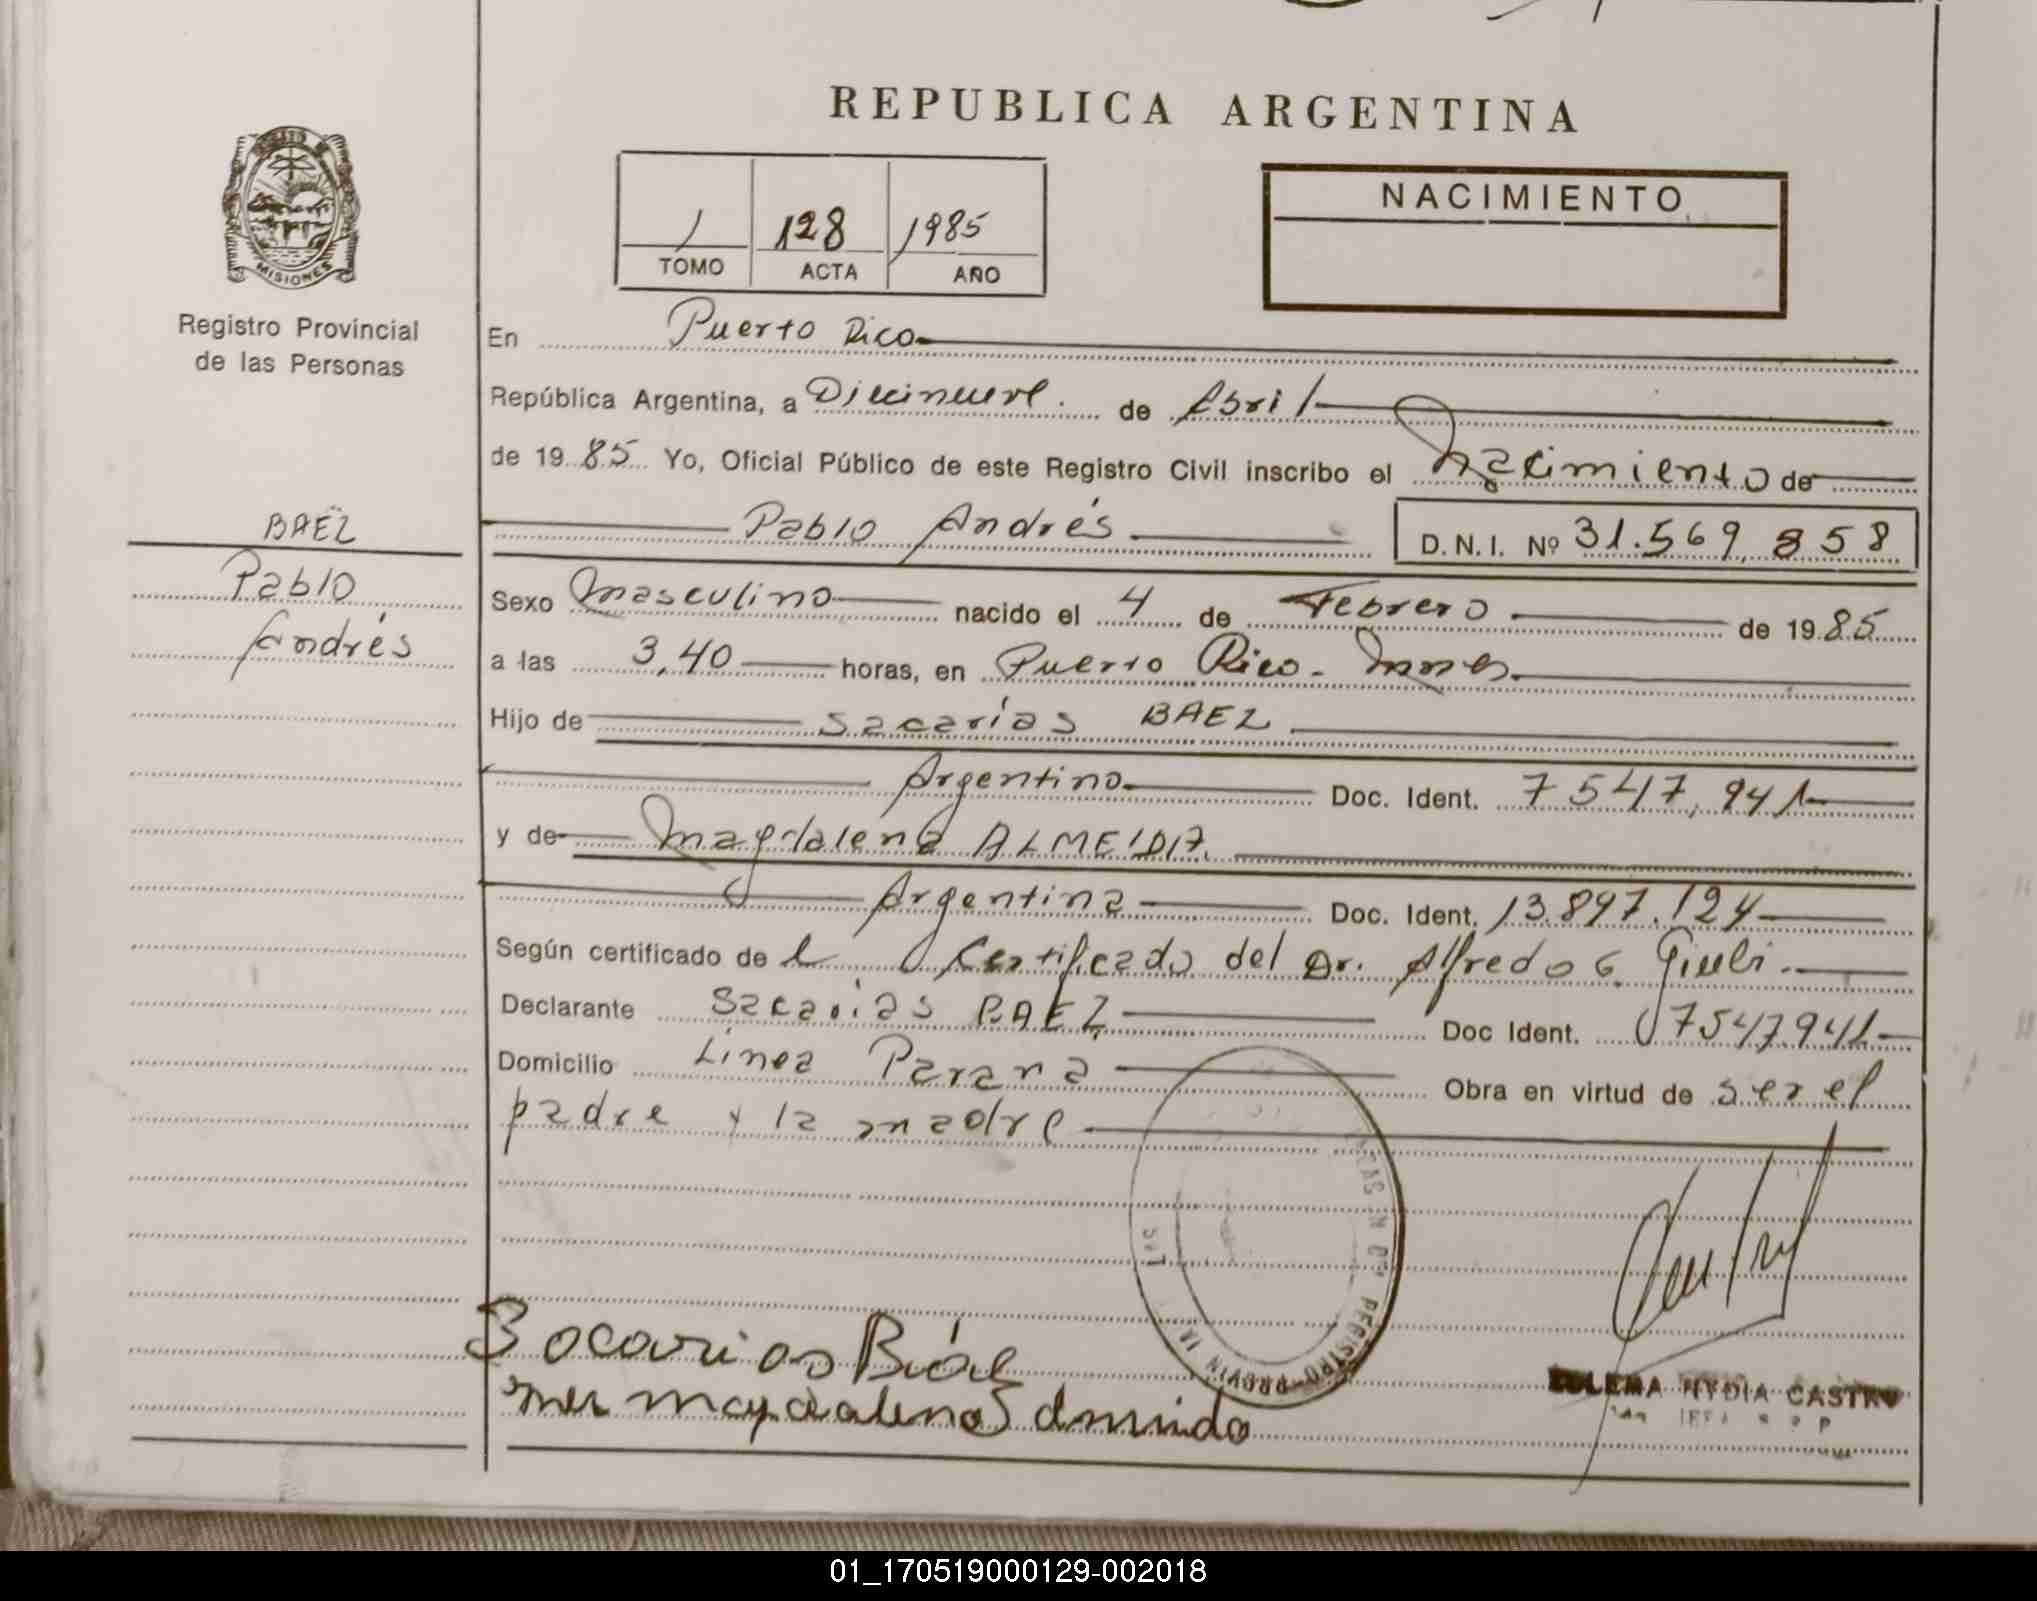 REPUBLICA ARGENTINA
MISIONES
Registro Provincial
de las Personas
1 128 1985
TOMO ACTA AÑO
NACIMIENTO
En Puerto Rico
República Argentina, a Diecinueve de Abril
de 19 85 Yo, Oficial Público de este Registro Civil inscribo el Nacimiento de
BAEZ
Pablo
Andrés
Pablo Andrés D.N.I. Nº 31.569.858
Sexo Masculino nacido el 4 de Febrero de 19 85
a las 3,40 horas, en Puerto Rico - Mnes.
Hijo de Sacarías BAEZ
Argentino Doc. Ident. 7547.941
y de Magdalena ALMEIDA
Argentina Doc. Ident. 13.897.124
Según certificado de l Certificado del Dr. Alfredo G.
Declarante Sacarias BAEZ Doc Ident. 7547.941
Domicilio Línea Parana Obra en virtud de ser el
padre y la madre
REGISTRO PROVIN
Socarias
CASTRO
01_170519000129-002018